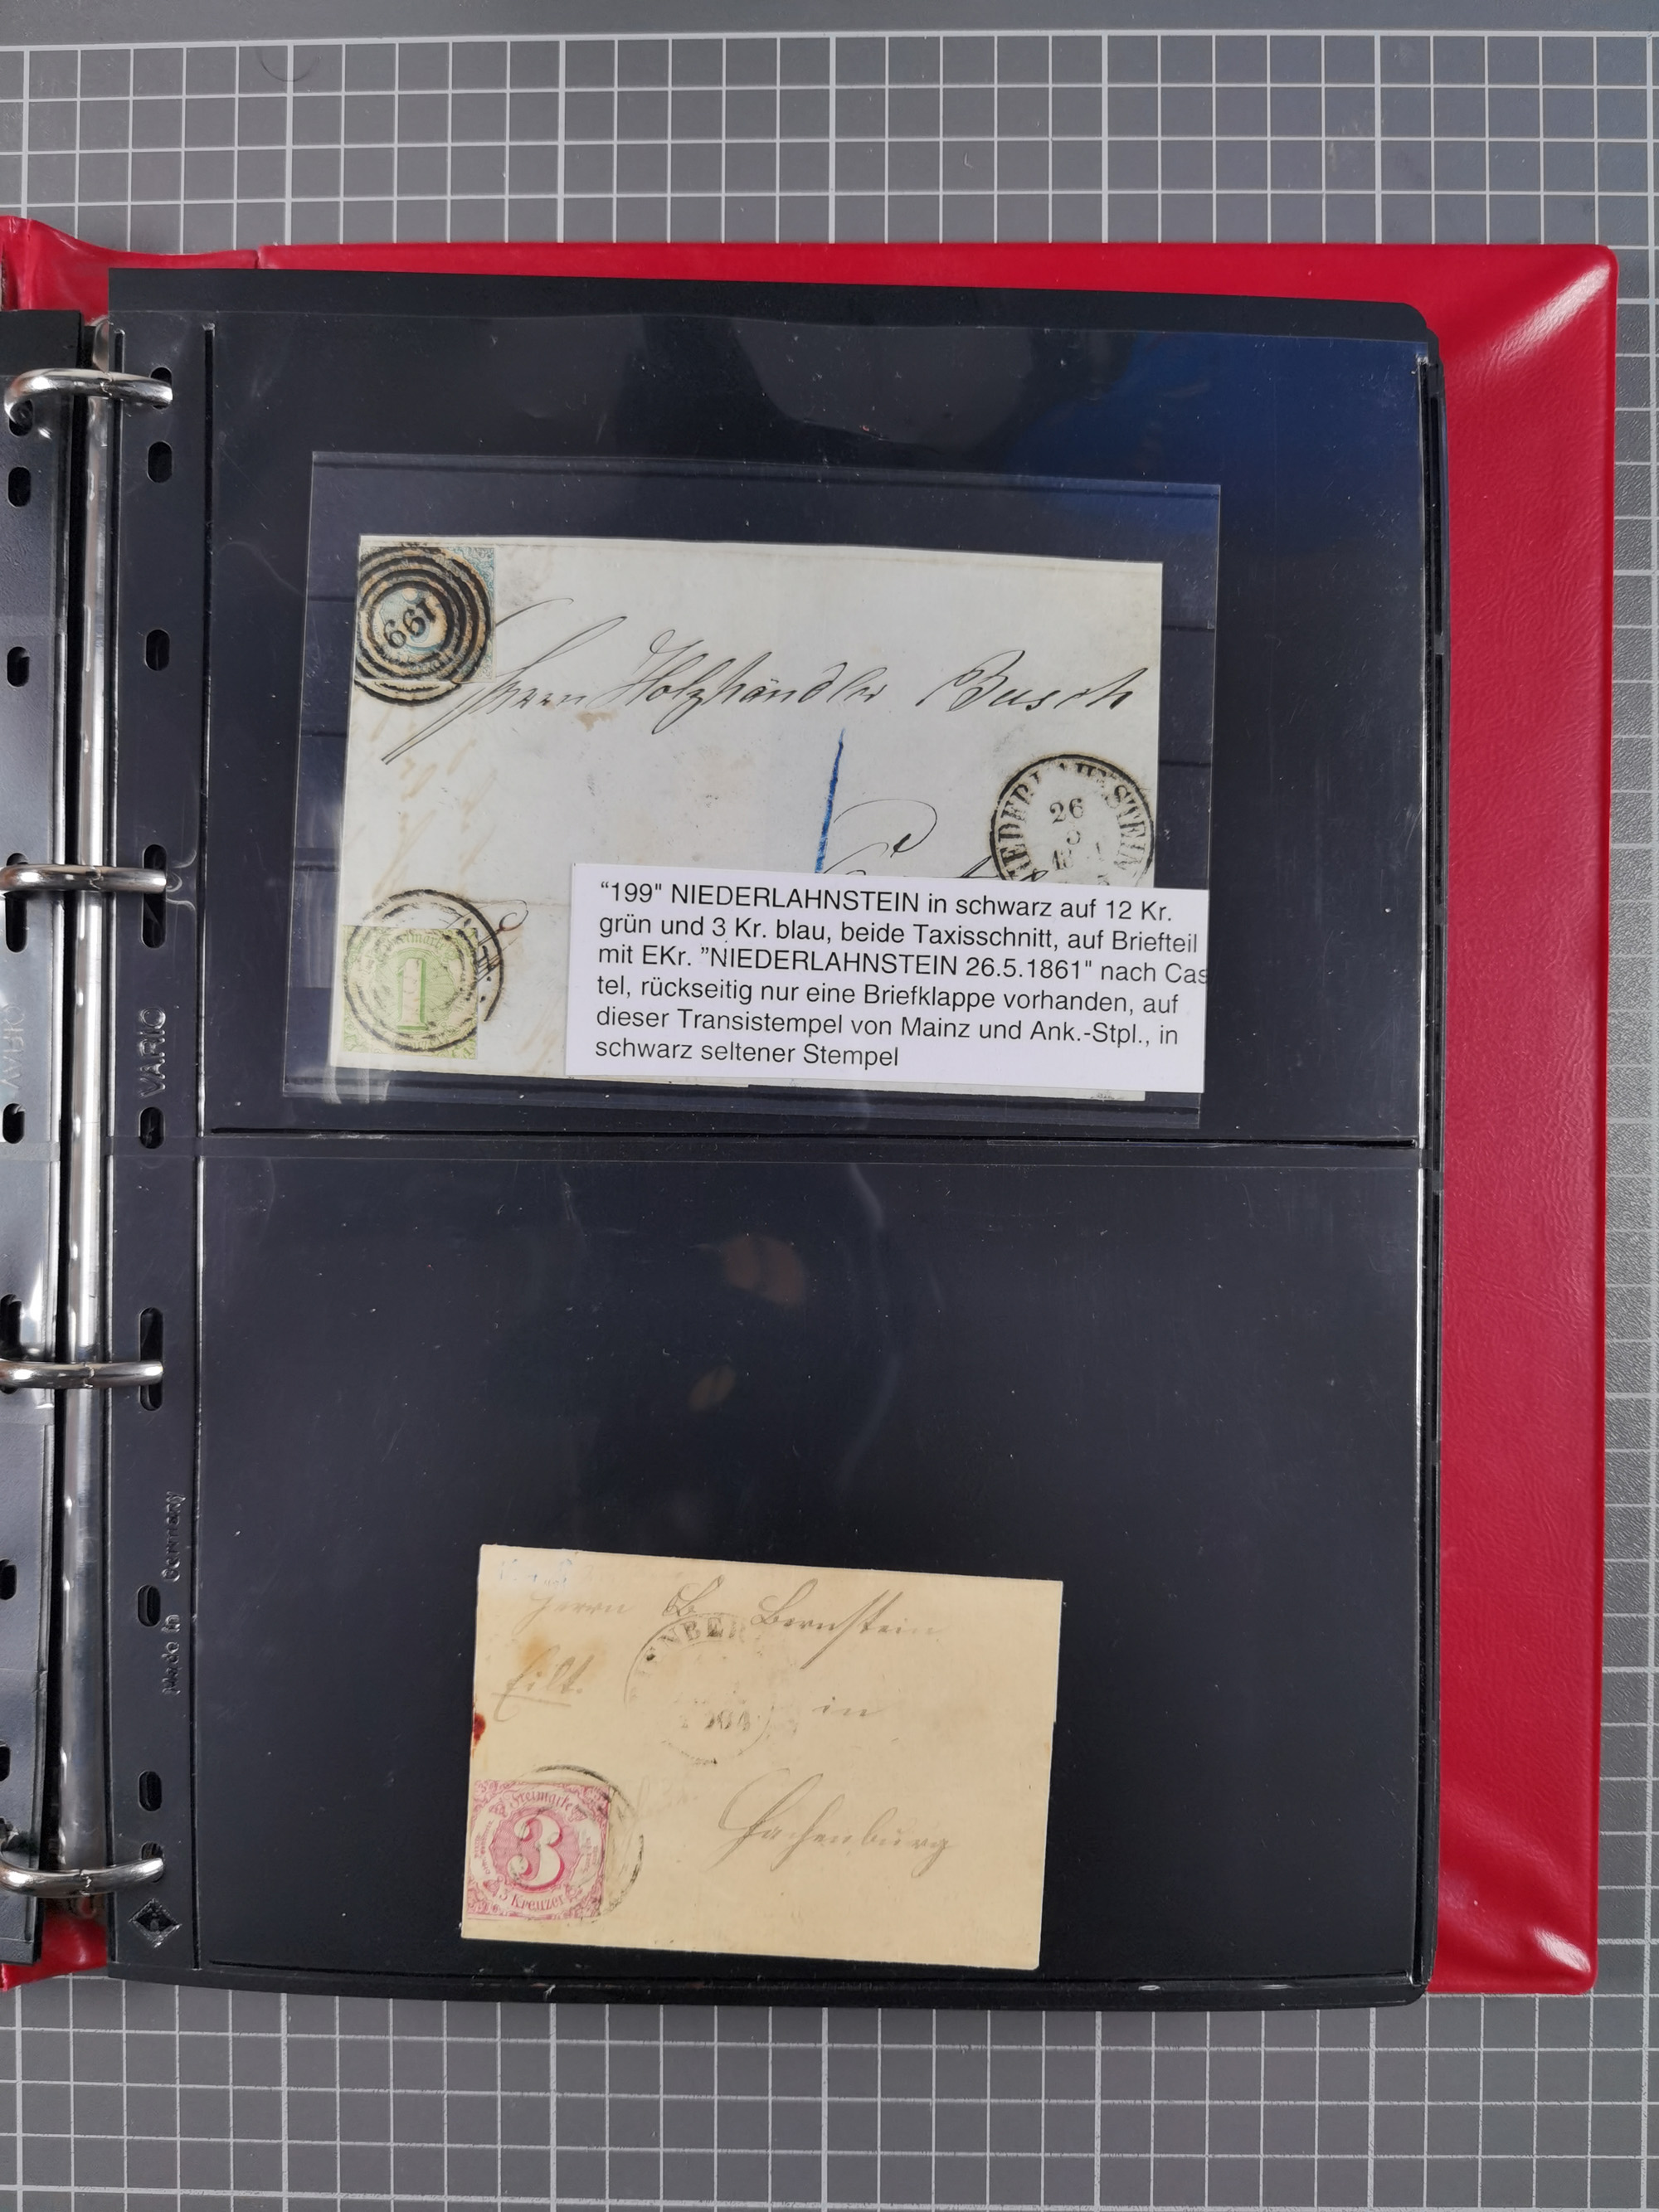 199
Herrn Holzhändler Busch
NIEDERLAHNSTEIN
26
5
1
“199" NIEDERLAHNSTEIN in schwarz auf 12 Kr.
grün und 3 Kr. blau, beide Taxisschnitt, auf Briefteil
mit EKr. ”NIEDERLAHNSTEIN 26.5.1861" nach Cas
tel, rückseitig nur eine Briefklappe vorhanden, auf
dieser Transistempel von Mainz und Ank.-Stpl., in
schwarz seltener Stempel
VARIO
VARIO
Made in Germany
Herrn B. Bernstein
Eilt.
in
Hachenburg
Freimarke
3
3 Kreuzer